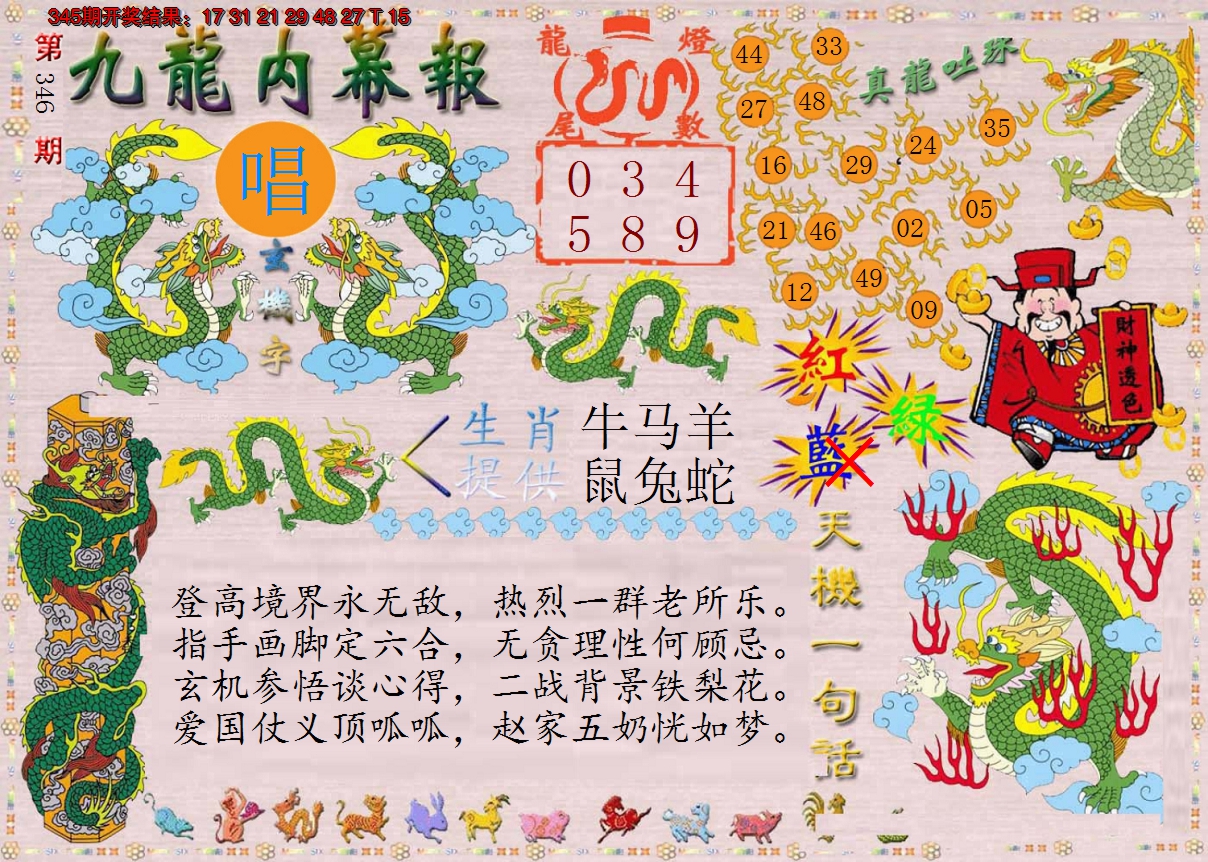 345期开奖结果：17 31 21 29 48 27 T 15
第346期
九龍内幕報
唱
玄機字
龍燈
尾數
0 3 4
5 8 9
真龍吐珠
44 33
27 48
35
24
16 29
05
21 46 02
49
12
09
財神透色
紅
綠
藍
生肖 牛马羊
提供 鼠兔蛇
天機一句話
登高境界永无敌，热烈一群老所乐。
指手画脚定六合，无贪理性何顾忌。
玄机参悟谈心得，二战背景铁梨花。
爱国仗义顶呱呱，赵家五奶恍如梦。